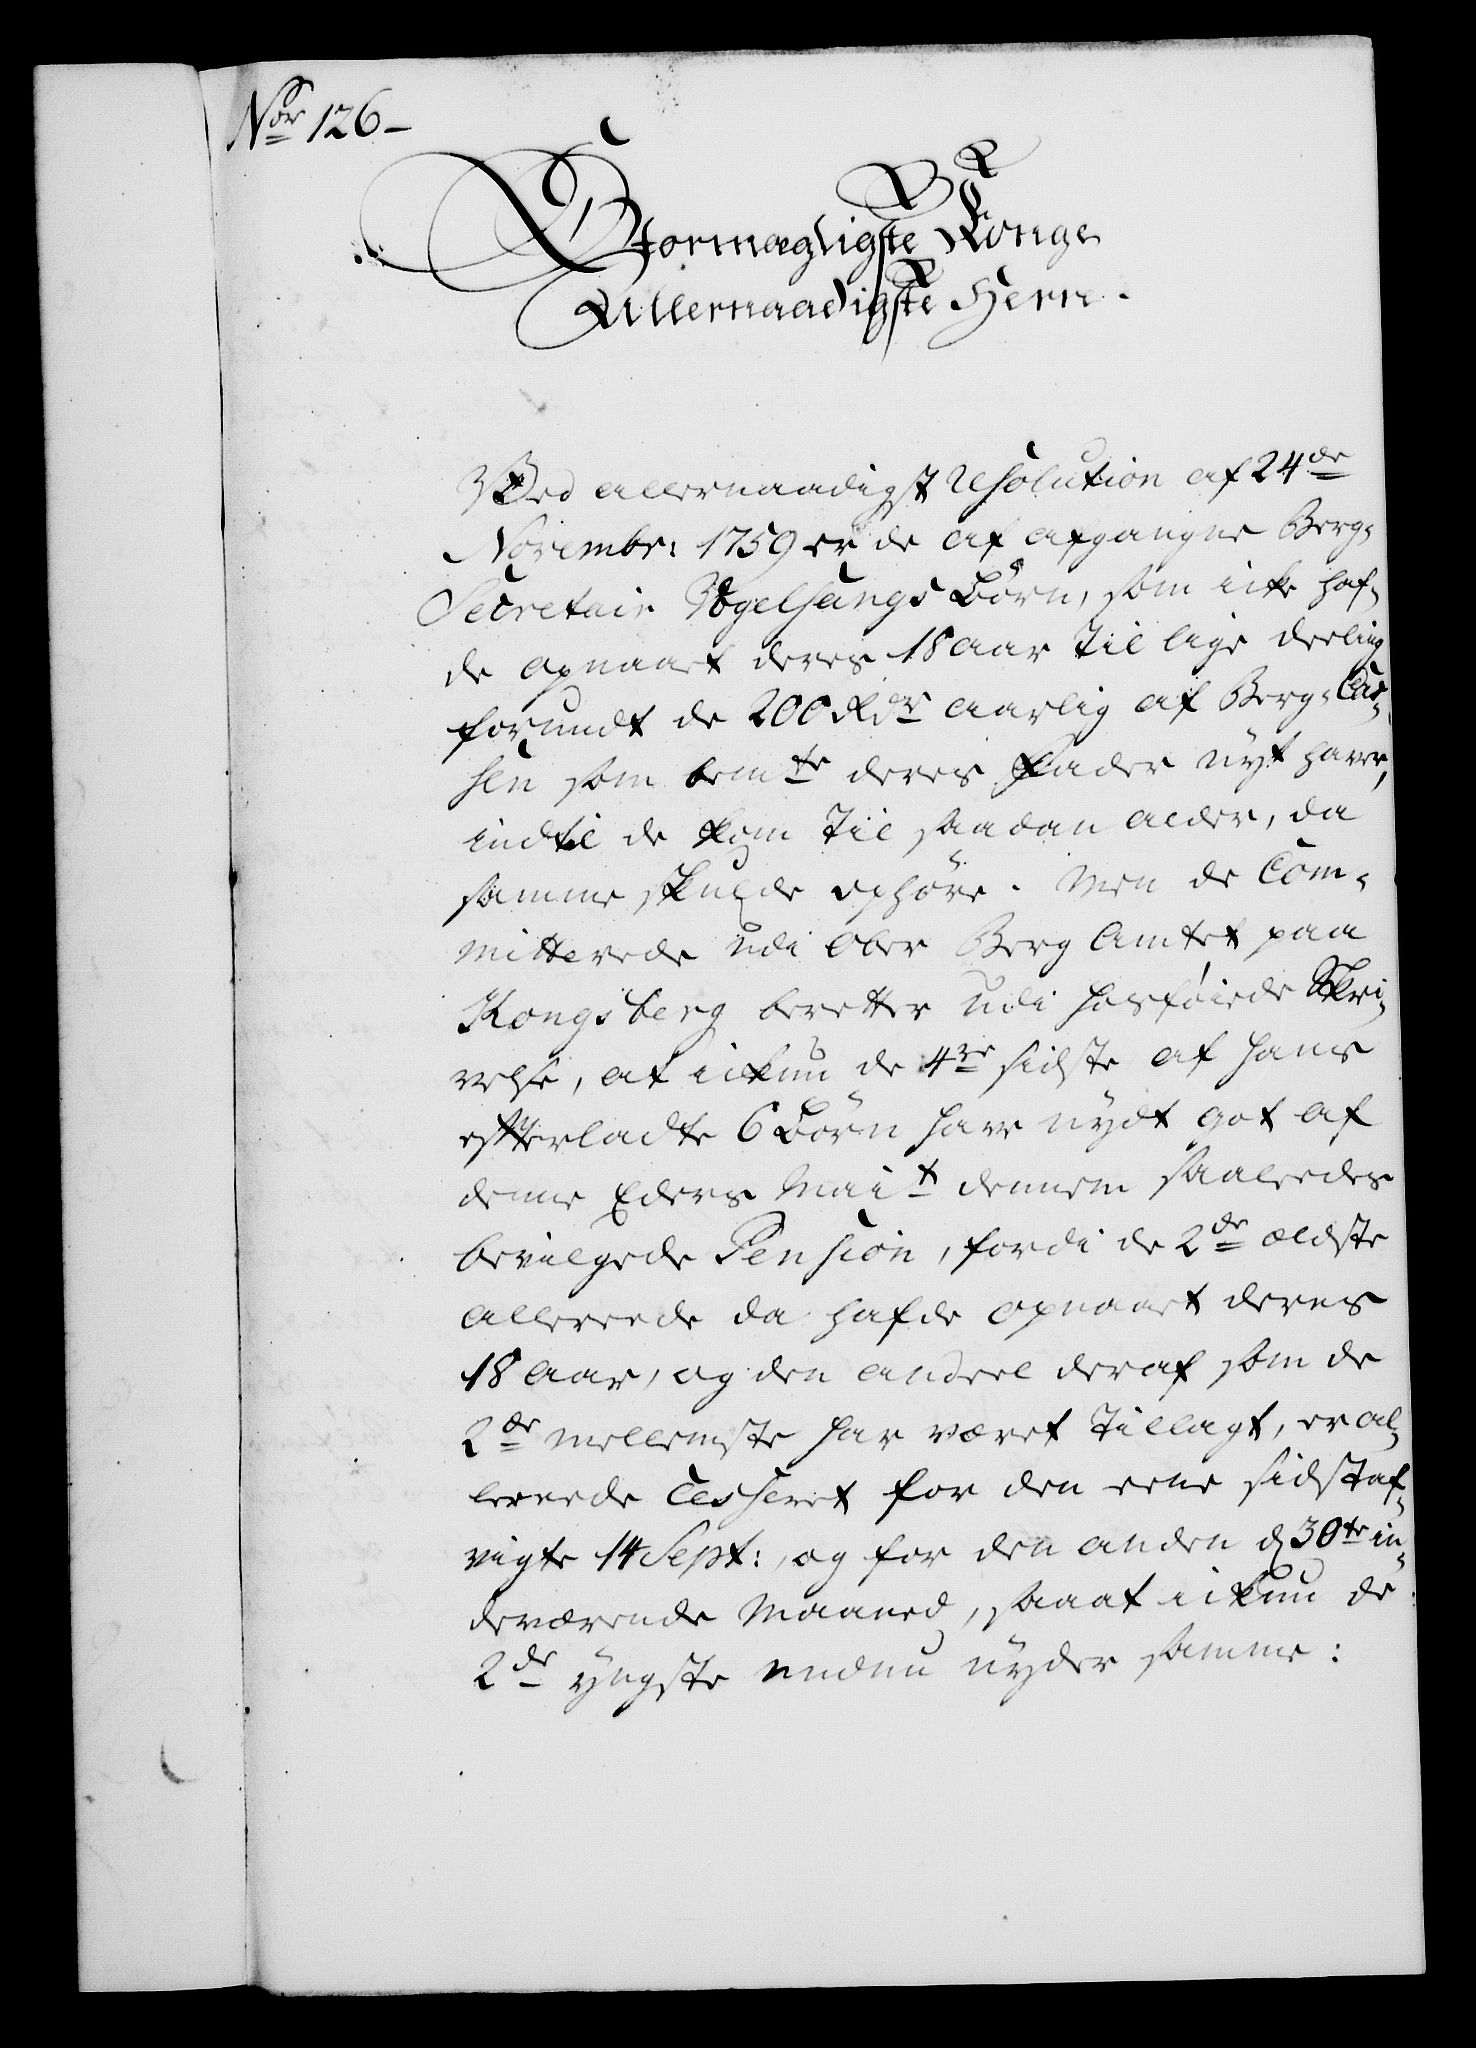 Nor 126-
Stormægtigste Konge
Allernaadigste Herre.
Ved allernaadigst Resolution af 24de
Novembr: 1759 er de af afgangne Berg-
Secretair Vogelsangs Börn, som icke haf-
de opnaaet deres 18 aar til lige deeling
forundt de 200 Rdr aarlig af Berg-Cas-
sen som bemte deres Fader nyt haver,
indtil de kom til saadan alder, da
samme skulde ophöre. Men de Com-
mitterede udi Ober Berg Amtet paa
Kongsberg beretter udi hosföiede Skri-
velse, at ickun de 4re sidste af hans
efterladte 6 Börn have nydt got af
denne Eders Mait dennem saaledes
bevilgede Pension, fordi de 2de ældste
allereede da hafde opnaaet deres
18 aar, og den andeel deraf som de
2de mellemste har været tillagt, er al-
lereede Cesseret for den eene sidstaf-
vigte 14 Sept:, og for den anden d 30te in-
deværende Maaned, saa at ickun de
2de yngste endnu nyder samme: